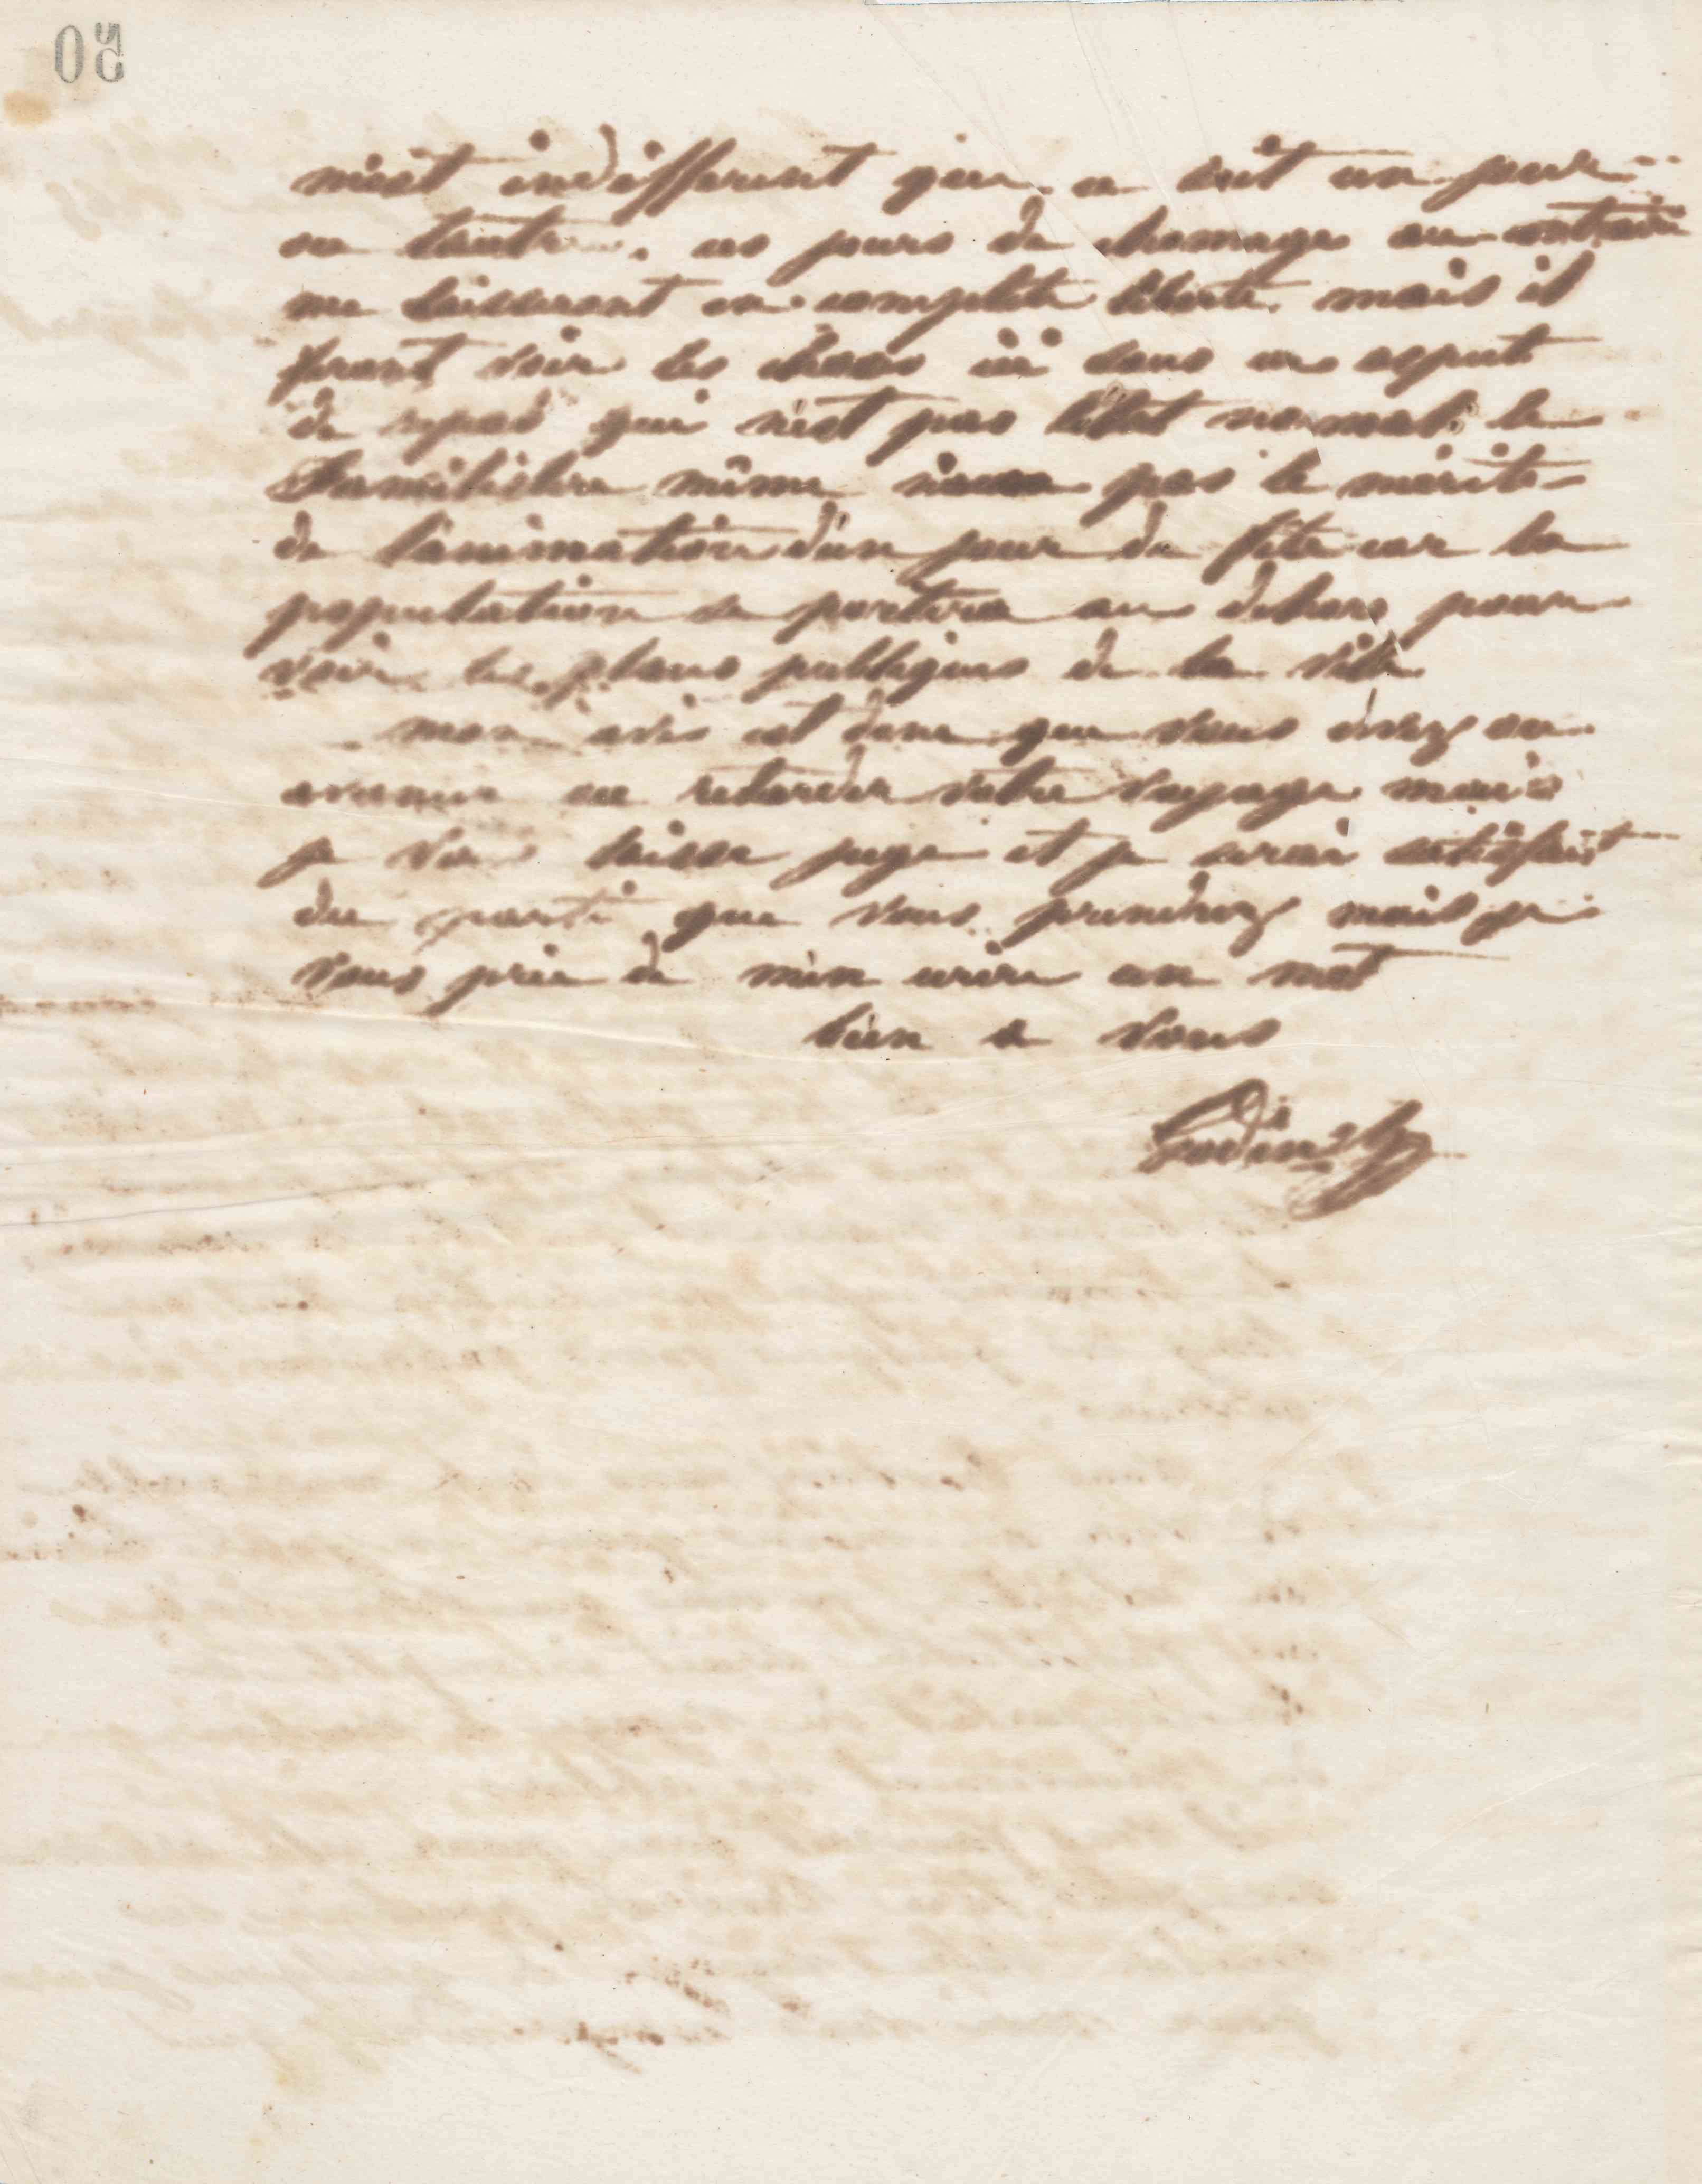 50
m'est indifferent que ce soit un jour
ou l'autre. ces jours de chomage au contraire
me laisseront en complète liberté. mais il
faut voir les choses ici sous un aspect
de repos qui n'est pas l'état normal. le
Familistère même pas le mérite
de l'animation d'un jour de fête car la
population se portera au dehors pour
voir les publiques de la ville
mon avis est donc que vous devez ou
avancer ou retarder votre voyage mais
je vous laisse juge et je serai satisfait
du parti que vous prendrez mais je
vous prie de m'en écrire un mot
bien a vous
Godin